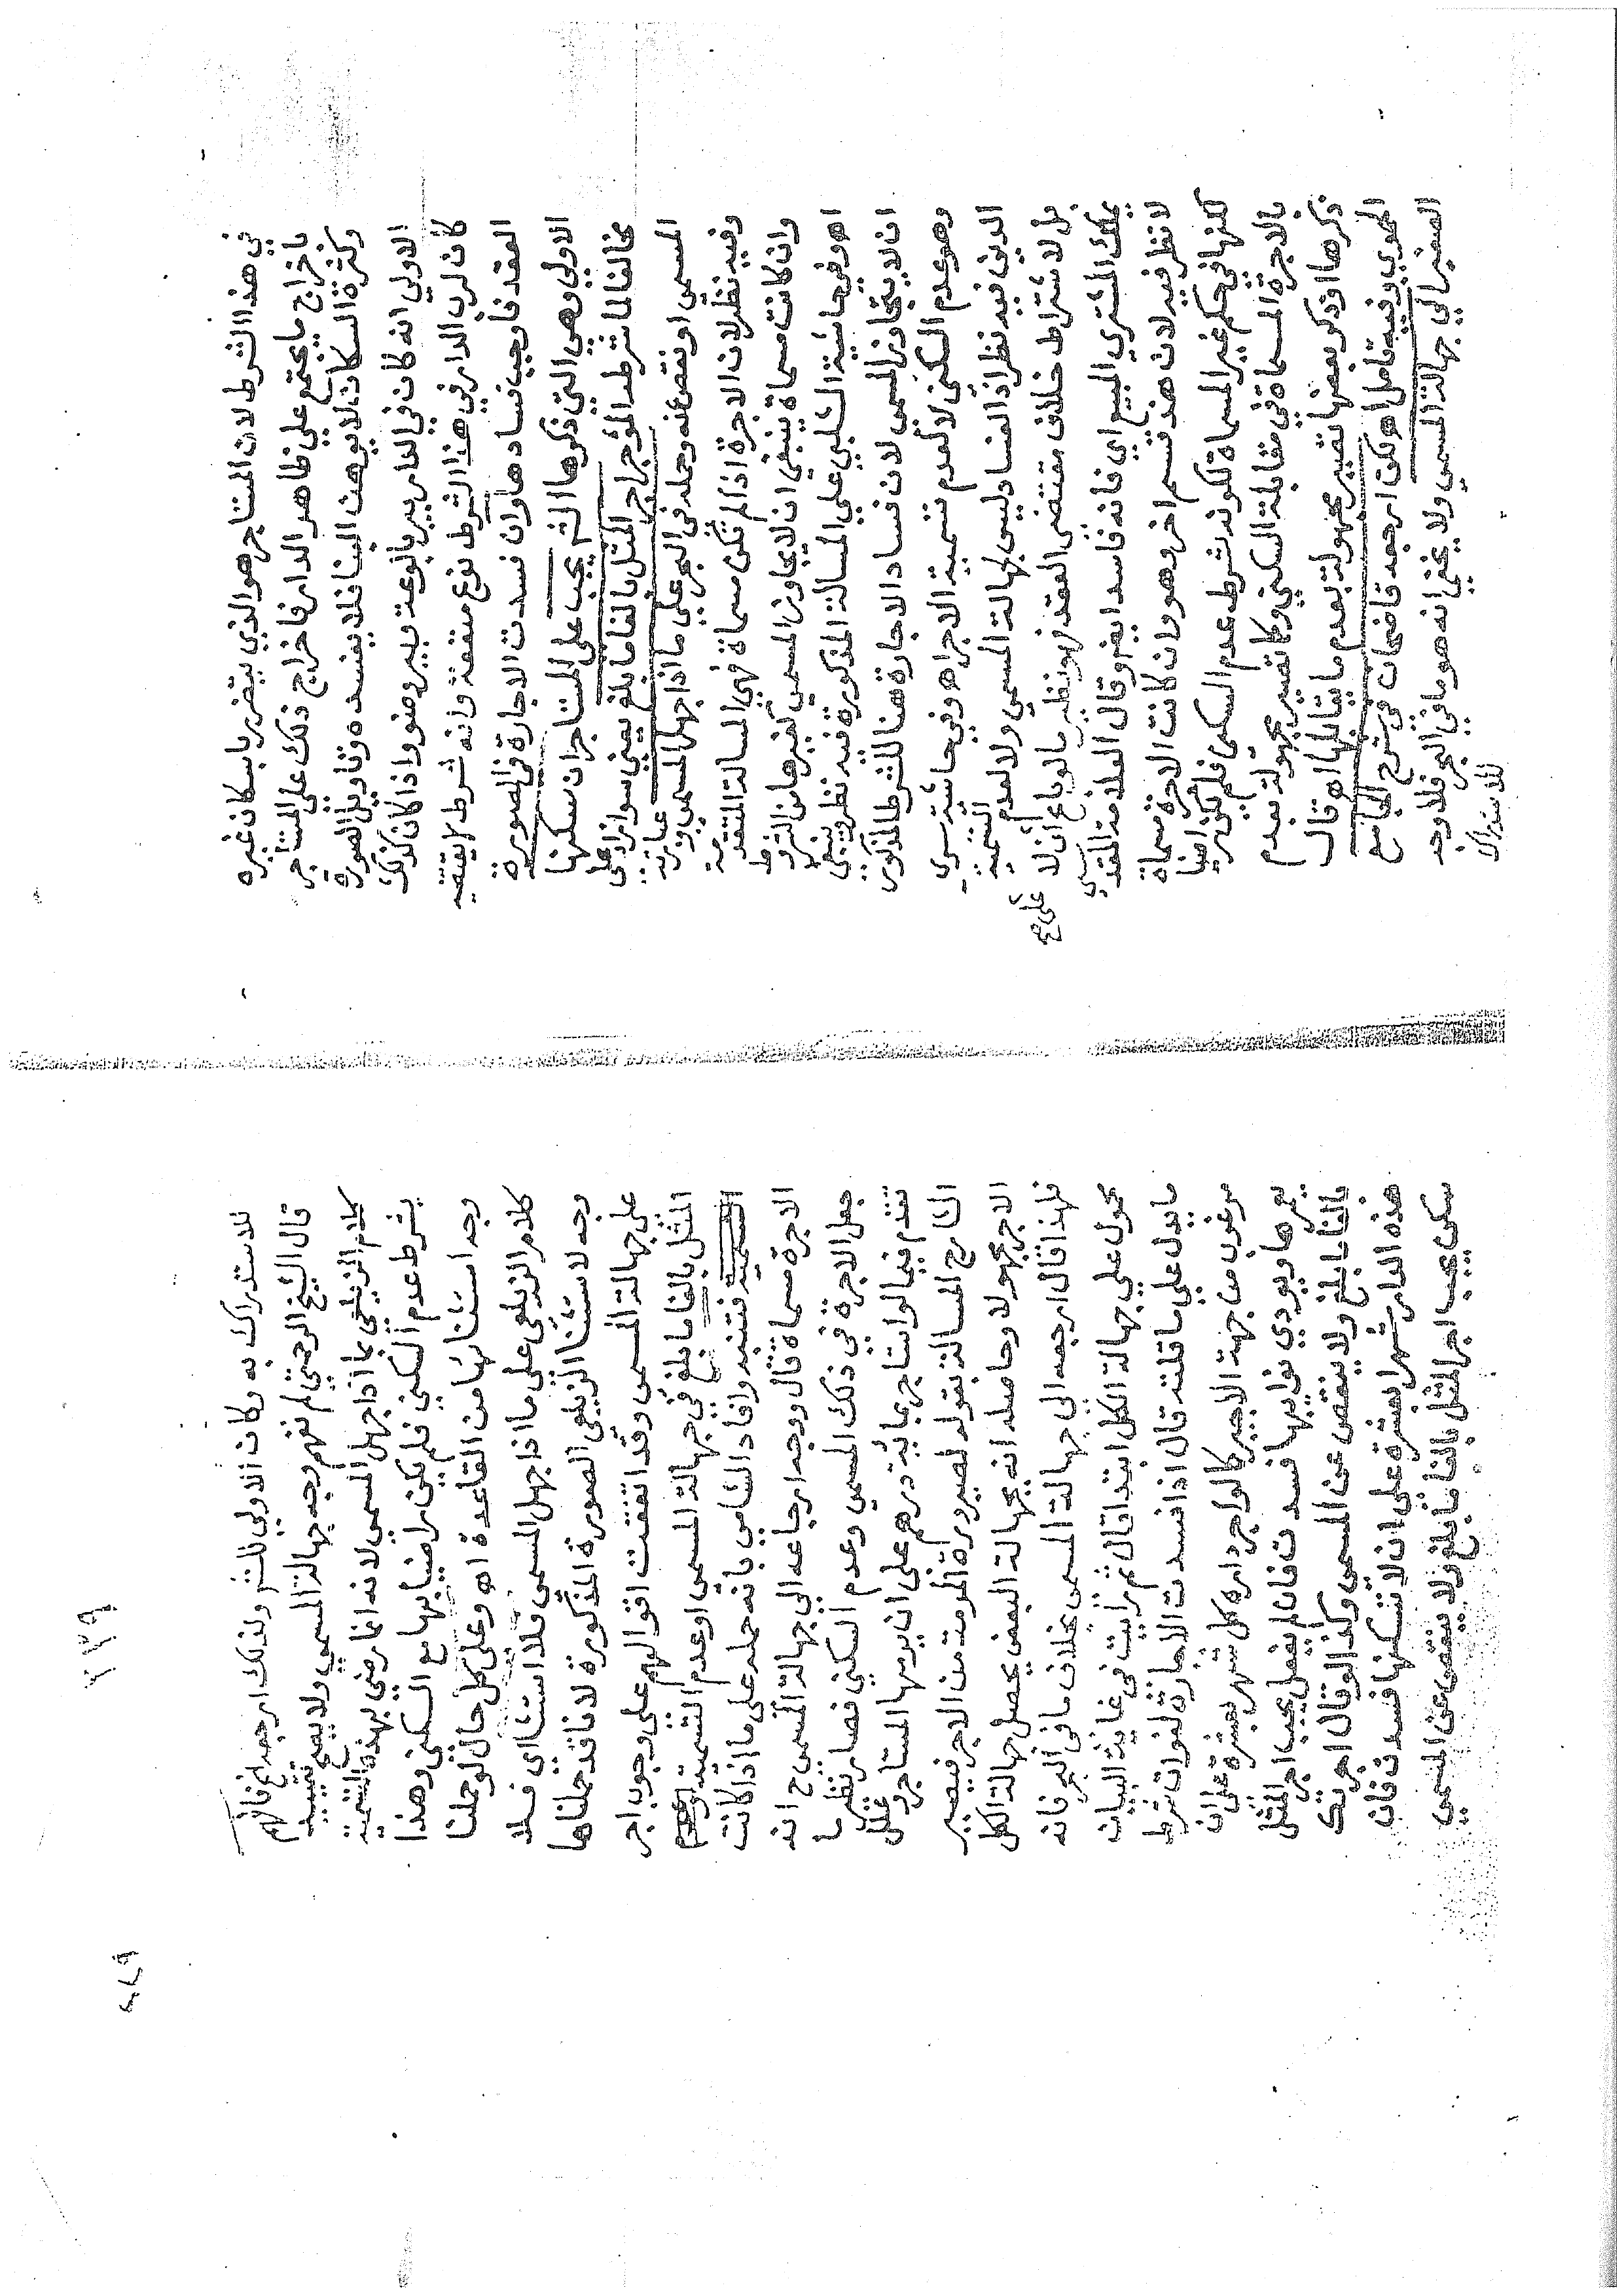 في هذا الشرط لان المستاجر هو الذي يتضرر باسكان غيره
باخراج ما يجتمع علي ظاهر الدار فاخراج ذلك علي المستاجر
وكثرة السكان لا يوهن البنا فلا يفسده وتاويل الصورة
الاولي انه كان في الدار بير بالوعة وبير وضوء واذا كان كذلك
كان لرب الدار في هذا الشرط نوع منفعة وانه شرط لا يقتضيه
العقد فاوجب فسادها وان فسدت الاجارة في الصورة
الاولي وهي التي ذكرها الشر يجب علي المستاجر ان سكنها
مخالفا لما شرطه المؤجر اجر المثل بالغا ما بلغ يعني سوا زاد علي
المسمي او نقص عنه وحمله في البحر علي ما اذا جهل المسمي وعبارته
وفيه نظر لان الاجرة اذا لم تكن مسماة فهي المسالة المتقدمة
وان كانت مسماة ينبغي ان لا يجاوز المسمي كغيرها من الشروط
اه وفي حاشية الشلبي علي المسالة المذكورة فيه نظر وينبغي
ان لا يتجاوز المسمي لان فساد الاجارة هنا للشرط المذكور
وهو عدم السكني لا لعدم تسمية الاجر اه وفي حاشية سري
الدين فيه نظر اذ الفساد ليس لجهالة المسمي ولا لعدم التسمية
بل لاشتراط خلاف مقتضي العقد فهو نظير ما لو باع علي ان لا
يملك المشتري المبيع اي فانه فاسد ايضا وقال العلامة المقدسي
لا نظر فيه لان هذه قسم اخر وهو وان كانت الاجرة مسماة
لكنها في حكم غير المسماة لكونه شرط عدم السكني فلم يكن راضيا
بالاجرة المسماة في مقابلة السكني وكانت تصير مجهولة بعدم
ذكرها او ذكر بعضها تصير مجهولة بعدم ما يقابلها اه قال
الحموي وفيه تامل اه لكن ارجعه قاضيخان في شرح الجامع
الصغير الي جهالة المسمي ولا يخفي انه هو ما في البحر فلا وجه
للاستدراك
٢٣٩
للاستدراك به وكان الاولي للشر ولذلك ارجعه الخ فافهم
قال الشيخ الرحمتي لم نفهم وجه جهالة المسمي ولا يصح تقييد
كلام الزيلعي بما اذا جهل المسمي لانه انما رضي بهذه التسمية
بشرط عدم السكني فلم يكن راضيا بها مع السكني وهذا
وجه استثنائها من القاعدة اه وعلي كل حال لو حملنا
كلام الزيلعي علي ما اذا جهل المسمي فلا استثنا اي فلا
وجه لاستثنا الزيلعي الصورة المذكورة لانا قد حملناها
علي جهالة المسمي وقد اتفقت اقوالهم علي وجوب اجر
المثل بالغا ما بلغ في جهالة المسمي او عدم التسمية
فتنبه وافاد الشامي بانه حمله علي ما اذا كانت
الاجرة مسماة قال ووجه ارجاعه الي جهالة المسمي ح انه
جعل الاجرة في ذلك المسمي وعدم السكني فصار نظير ما
تقدم فيما لو استاجر بماية درهم علي ان يرمها المستاجر وعلل
الشارح المسالة بقوله لصيرورة المرمة من الاجر فيصير
الاجر مجهولا وحاصله انه بجهالة البعض يحصل جهالة الكل
فلهذا قال ارجعه الي جهالة المسمي بخلاف ما في البحر فانه
محمول علي جهالة الكل ابتدا قال ثم رايت في غاية البيان
ما يدل علي ما قلته قال اذا فسدت الاجارة لفوات شرط
مرغوب من جهة الاجير كما لو اجر داره كل شهر بعشرة علي ان
يعمرها ويودي نوايبها فسدت فان لم يفعل يجب اجر المثل
بالغا ما بلغ ولا ينقص عن المسمي وكذا لو قال اجرتك
هذه الدار شهرا بعشرة علي ان لا تسكنها فسدت فان
سكن يجب اجر المثل بالغا ما بلغ ولا ينقص عن المسمي